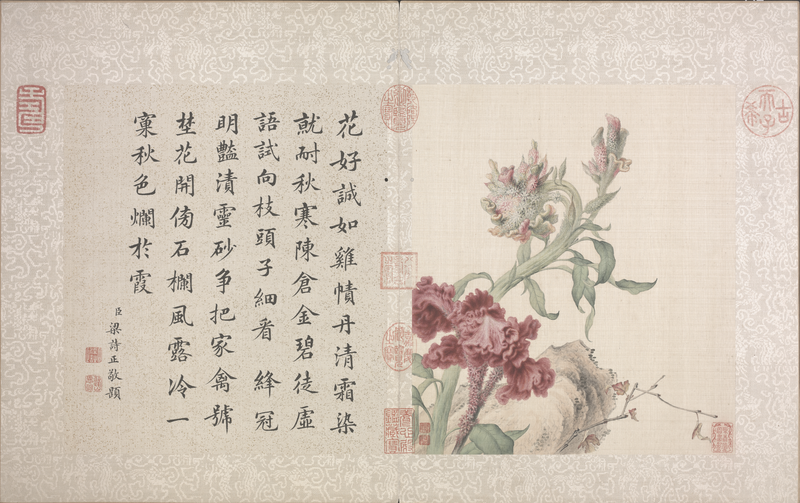 花好誠如雞幘丹清霜染
就耐秋寒陳倉金碧徒虛
語試向枝頭子細看 絳冠
明豔漬靈砂争把家禽號
埜花開傍石欄風露冷一
窠秋色爛於霞
臣梁詩正敬題
古希天子